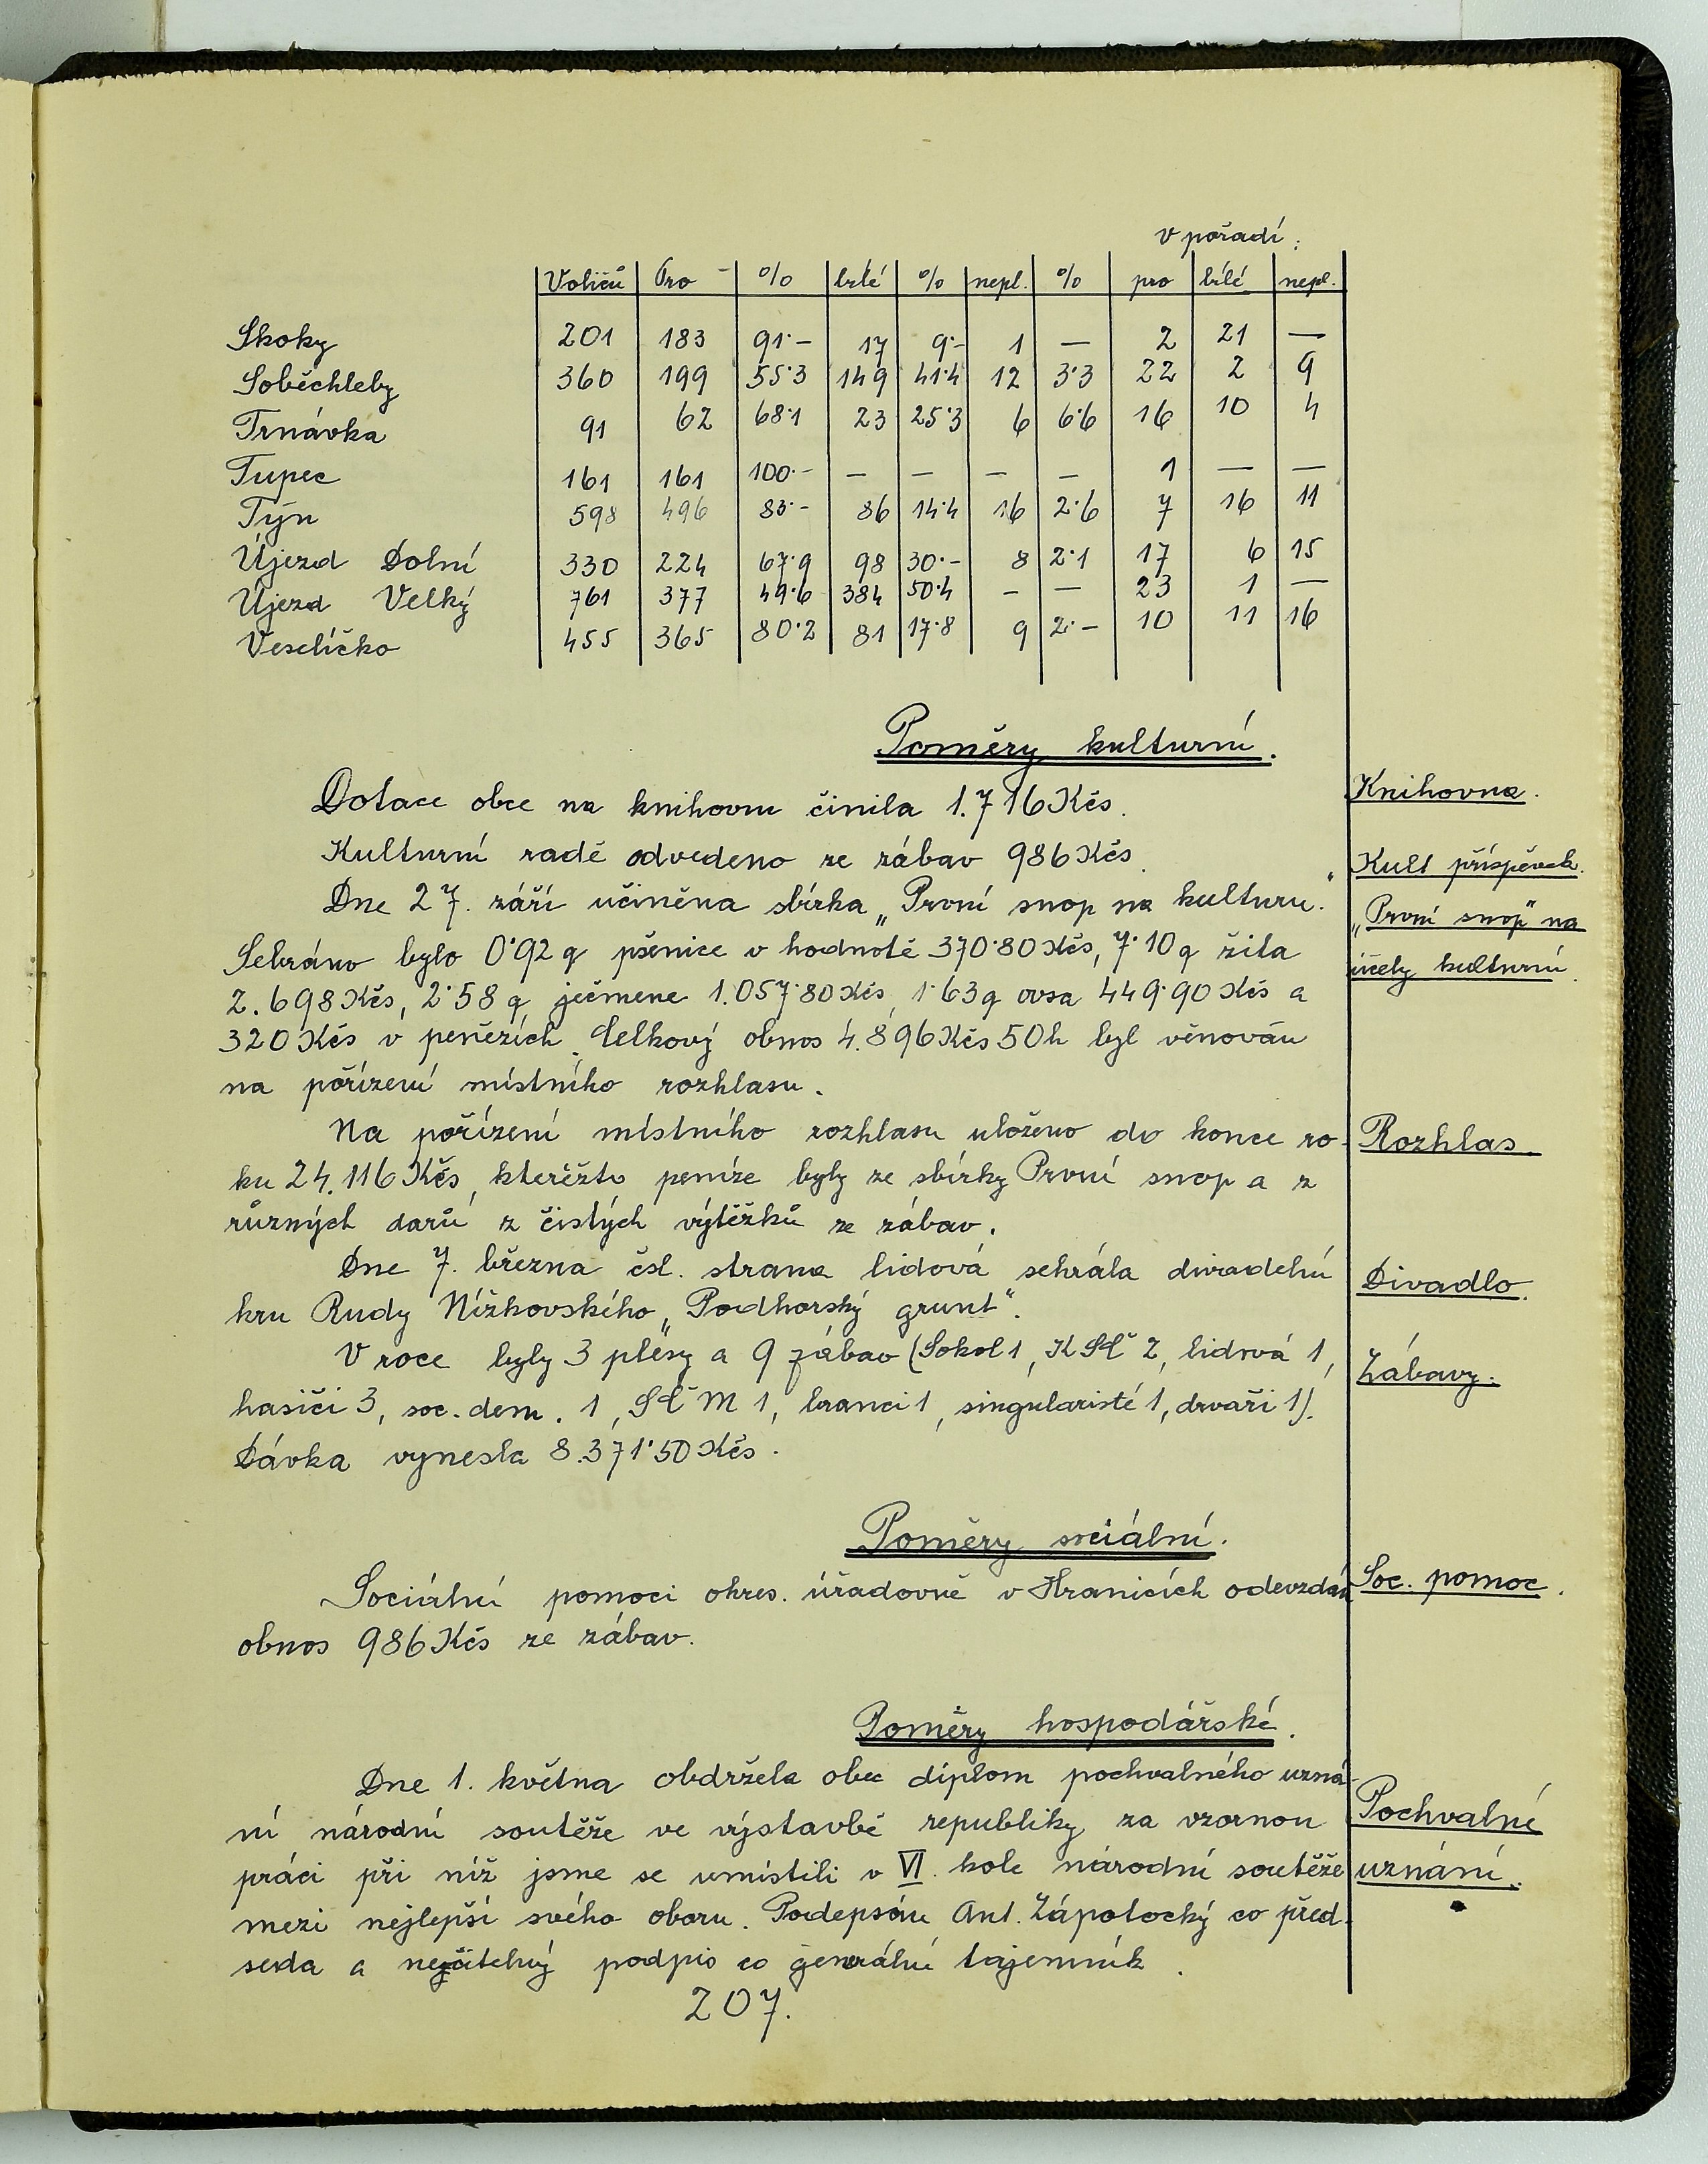 v pořadí:
Voličů Pro % bílé % nepl. % pro bílé nepl.
Skoky 201 183 91·– 17 9·– 1 — 2 21 —
Soběchleby 360 199 55·3 149 41·4 12 3·3 22 2 9
Trnávka 91 62 68·1 23 25·3 6 6·6 16 10 4
Tupec 161 161 100·– — — — — 1 — —
Týn 598 496 83·– 86 14·4 16 2·6 7 16 11
Újezd Dolní 330 224 67·9 98 30·– 8 2·1 17 6 15
Újezd Velký 761 377 49·6 384 50·4 – — 23 1 —
Veselíčko 455 365 80·2 81 17·8 9 2·– 10 11 16
Poměry kulturní.
Dotace obce na knihovnu činila 1.716 Kčs. Knihovna.
Kulturní radě odvedeno ze zábav 986 Kčs. Kult příspěvek.
Dne 27. září učiněna sbírka „První snop na kulturu." „První snop" na
Sebráno bylo 0·92 q pšenice v hodnotě 370·80 Kčs, 7·10 q žita účely kulturní.
2.698 Kčs, 2·58 q ječmene 1.057·80 Kčs, 1·63 q ovsa 449·90 Kčs a
320 Kčs v penězích. Celkový obnos 4.896 Kčs 50 h byl věnován
na pořízení místního rozhlasu.
Na pořízení místního rozhlasu uloženo do konce ro- Rozhlas.
ku 24.116 Kčs, kteréžto peníze byly ze sbírky První snop a z
různých darů z čistých výtěžků ze zábav.
Dne 7. března čsl. strana lidová sehrála divadelní Divadlo.
hru Rudy Nížkovského „Podhorský grunt".
V roce byly 3 plesy a 9 zábav (Sokol 1, KSČ 2, lidová 1, Zábavy.
hasiči 3, soc. dem. 1, SČM 1, branci 1, singularisté 1, drvaři 1).
Dávka vynesla 8.371·50 Kčs.
Poměry sociální.
Sociální pomoci okres. úřadovně v Hranicích odevzdán Soc. pomoc.
obnos 986 Kčs ze zábav.
Poměry hospodářské.
Dne 1. května obdržela obec diplom pochvalného uzná-
ní národní soutěže ve výstavbě republiky za vzornou Pochvalné
práci při níž jsme se umístili v VI. kole národní soutěže uznání.
mezi nejlepší svého oboru. Podepsán Ant. Zápotocký co před-
seda a nečitelný podpis co generální tajemník.
207.